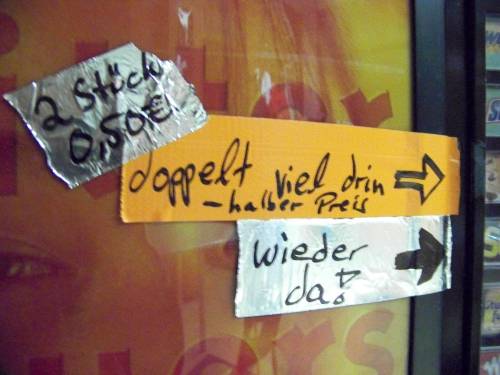 2 Stück
0,50€
doppelt viel drin
- halber Preis
wieder
da!